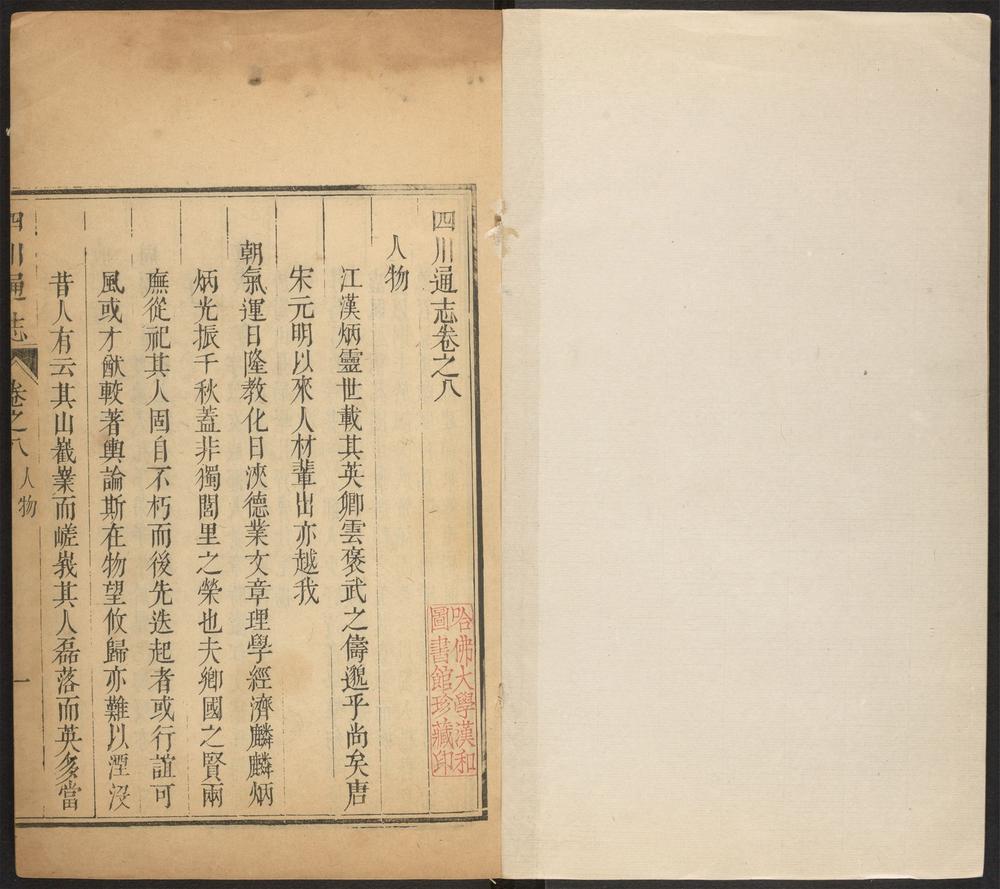 四川通志卷之八
哈佛大學漢和
圖書館珍藏印
人物
江漢炳靈世載其英卿雲褒武之儔邈乎尚矣唐
宋元明以來人材輩出亦越我
朝氣運日隆教化日浹德業文章理學經濟麟麟炳
炳光振千秋蓋非獨閭里之榮也夫鄉國之賢兩
廡從祀其人固自不朽而後先迭起者或行誼可
風或才猷較著輿論斯在物望攸歸亦難以湮沒
昔人有云其山嶻嶪而嵯峩其人磊落而英多當
四川通志
卷之八
人物
一